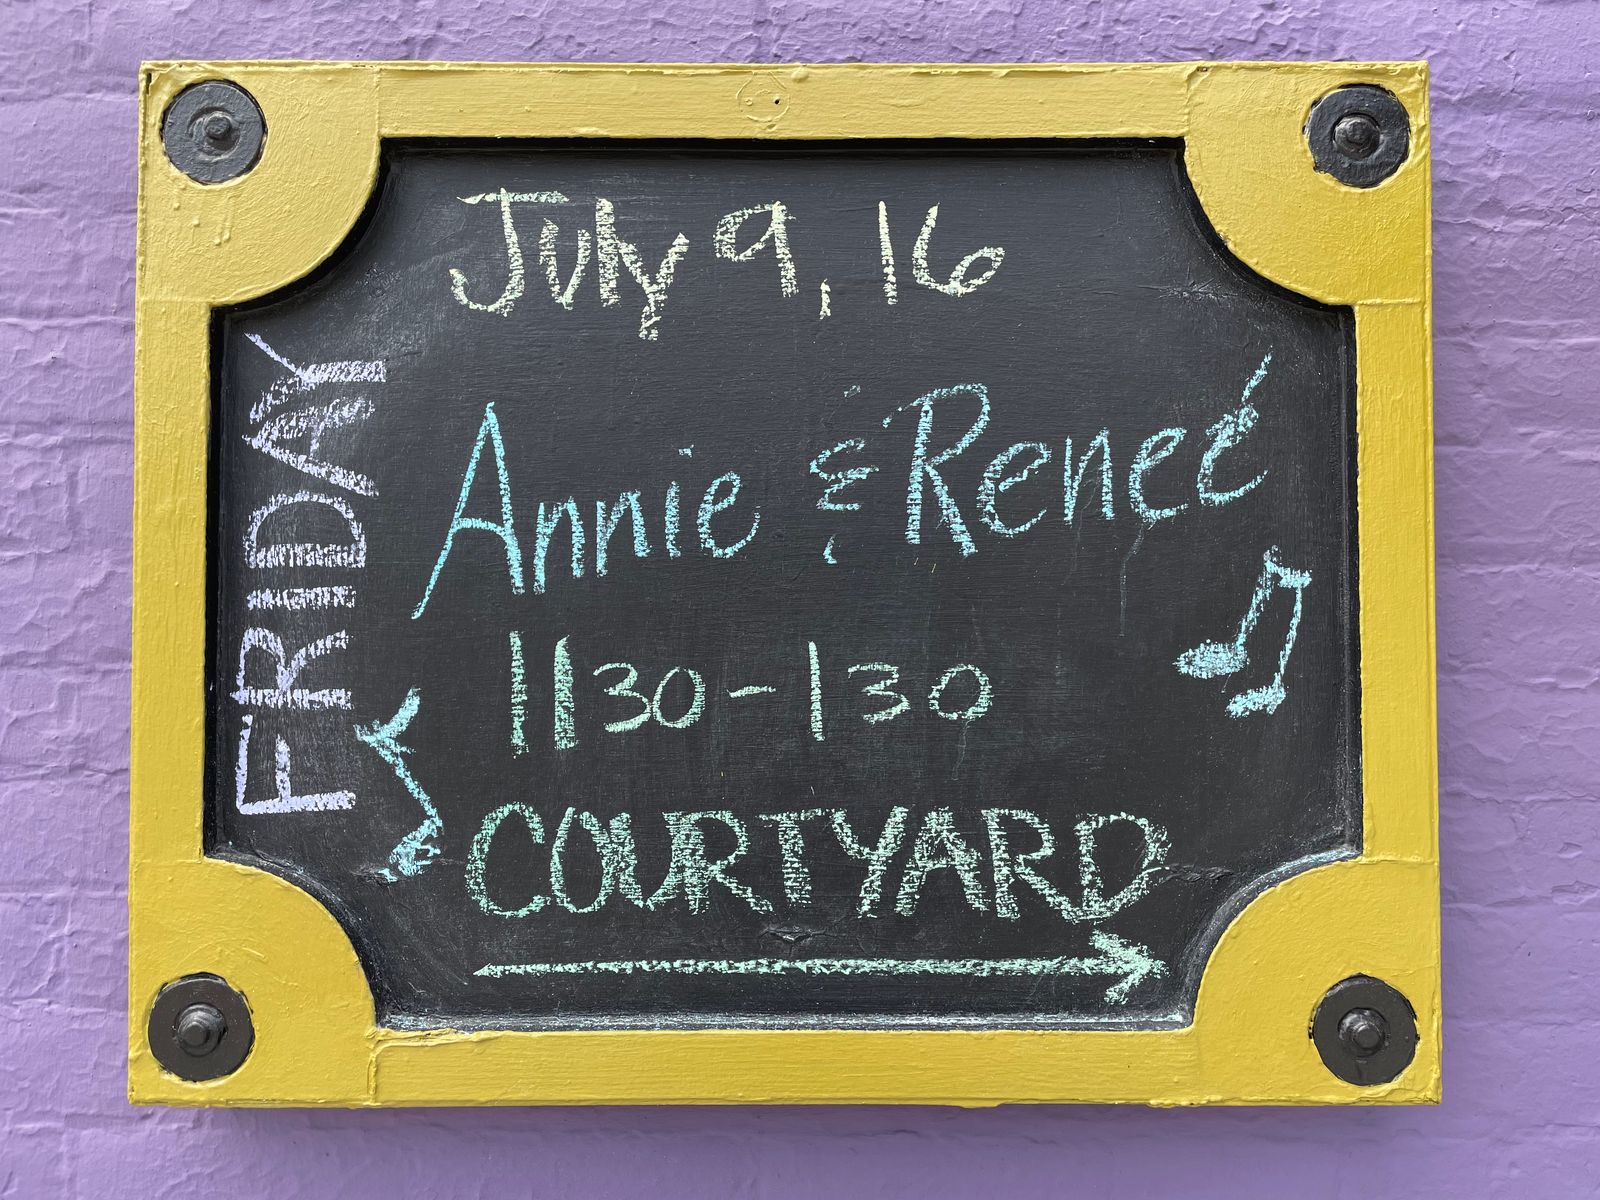 July 9, 16
FRIDAY
Annie & Reneé
1130-130
COURTYARD